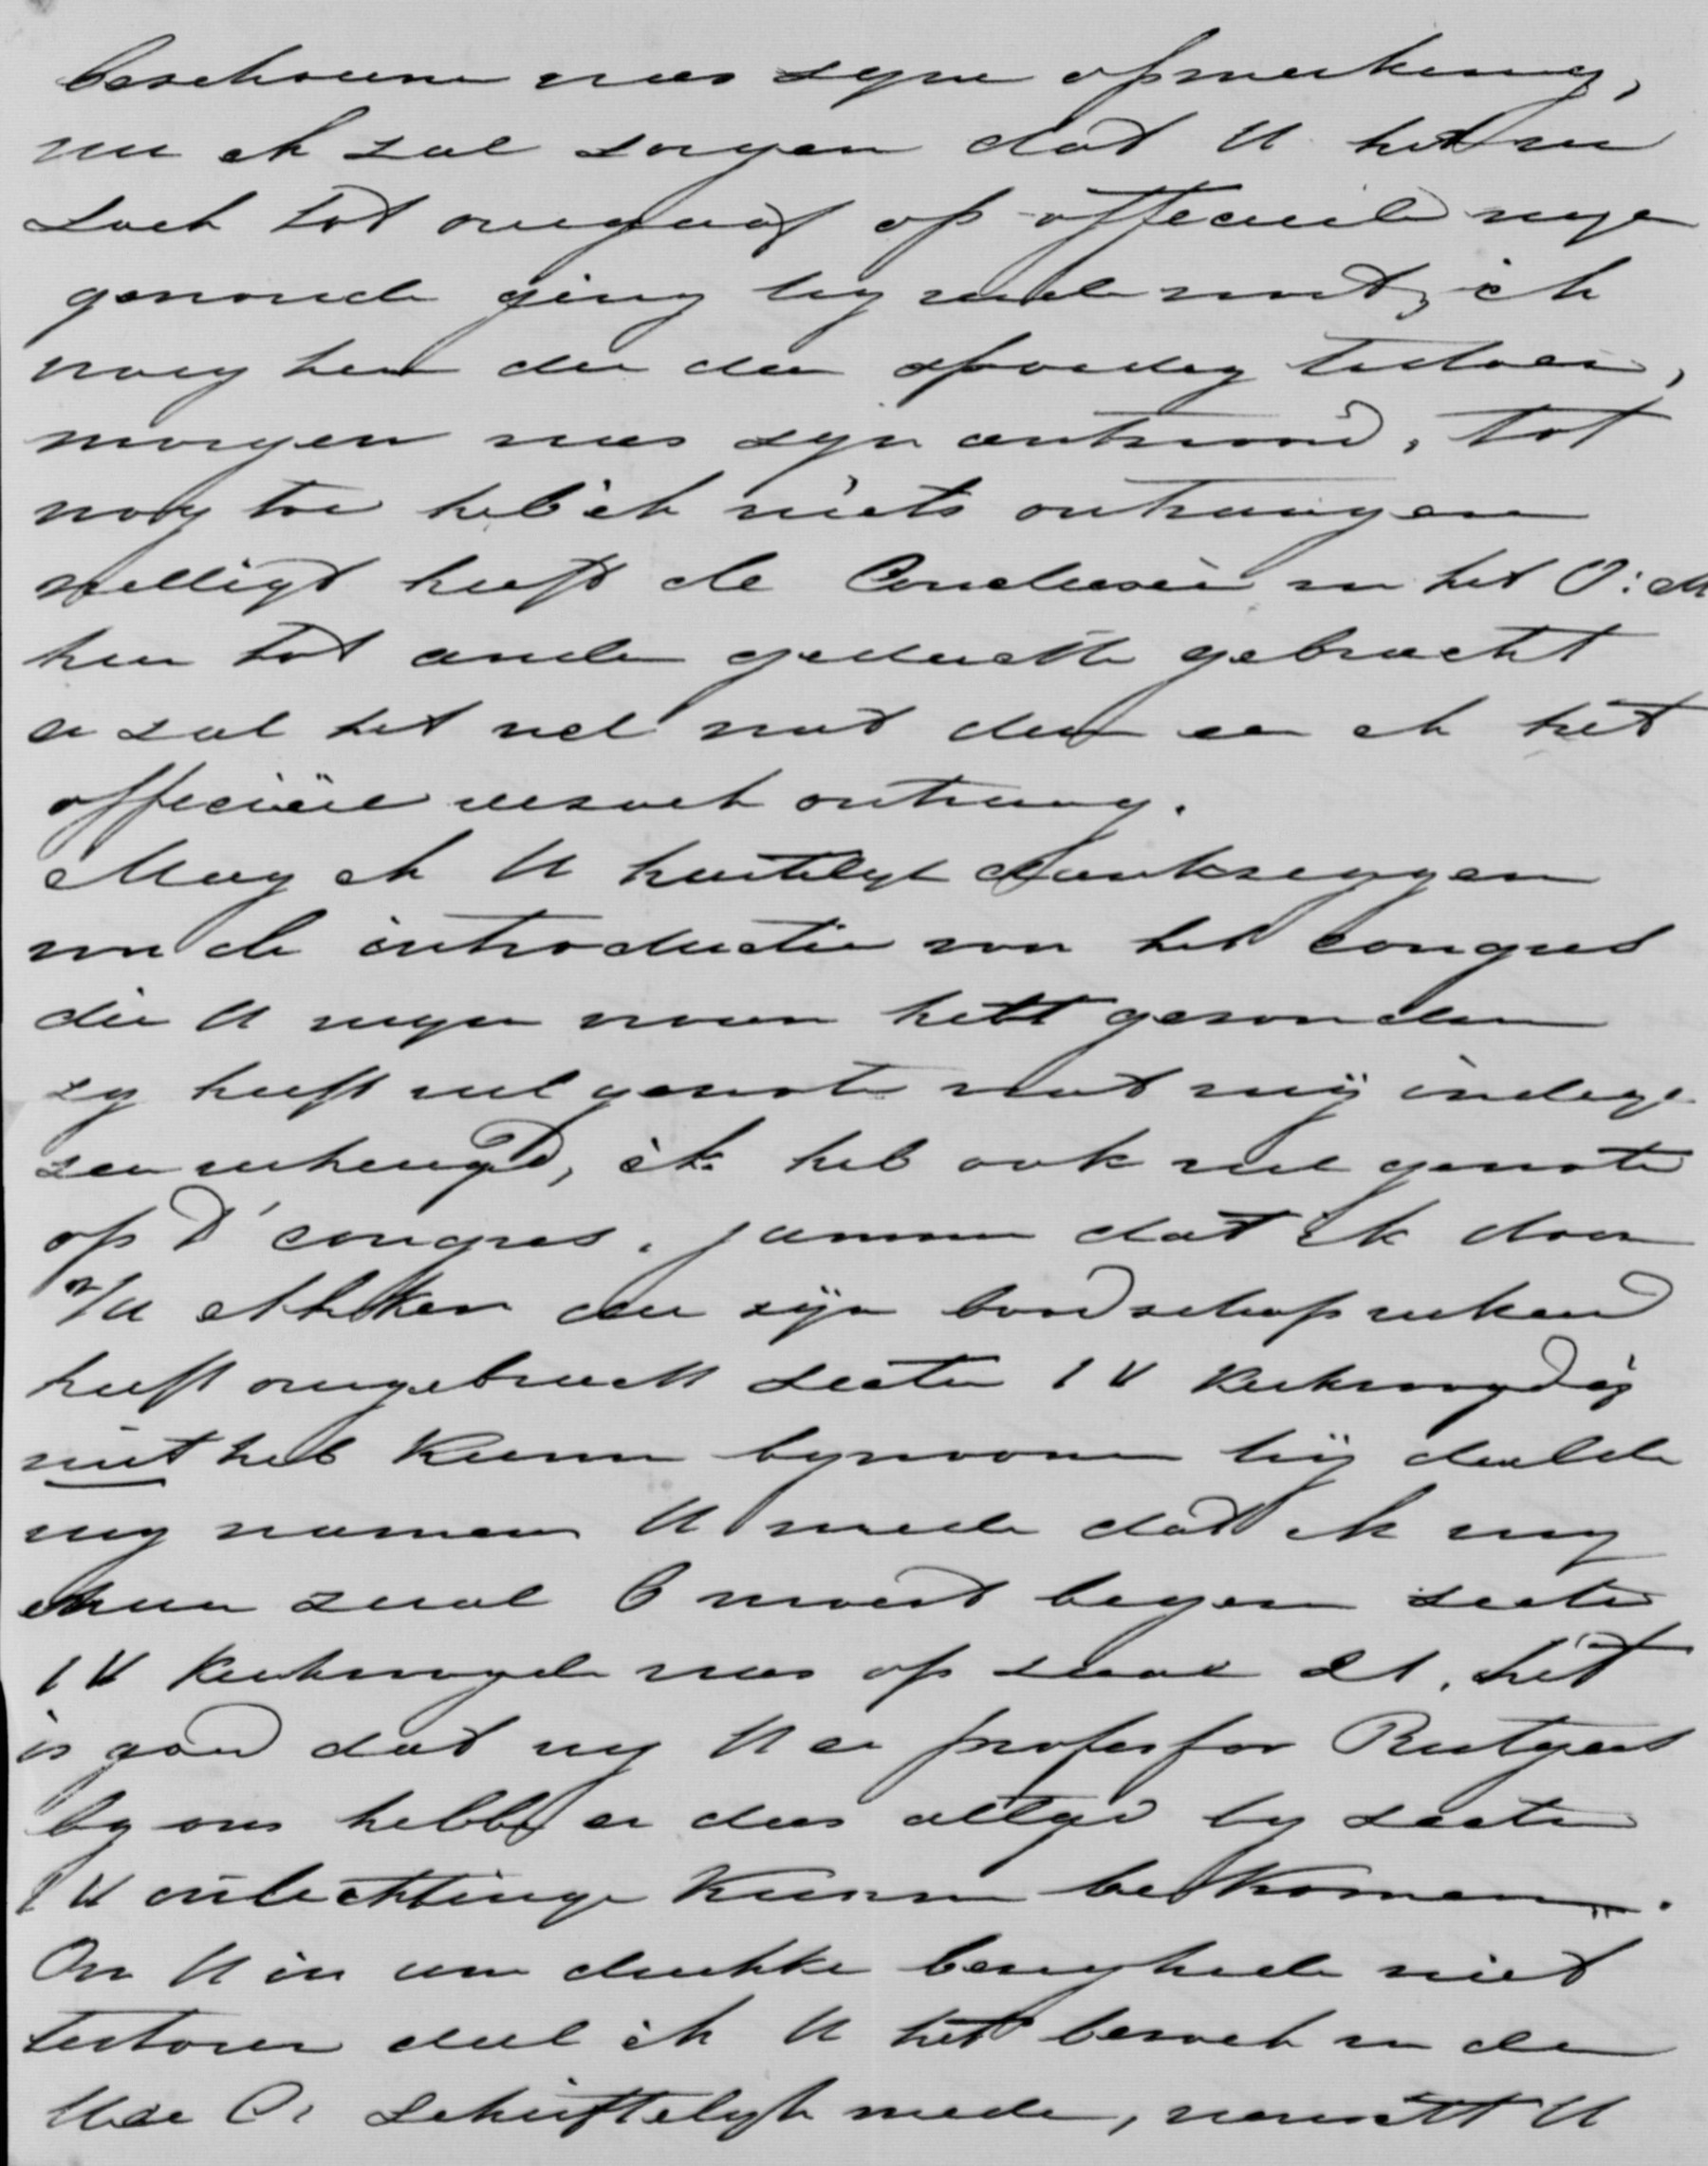 beschouwen was zyne opmerking,
nu ik zal zorgen dat U het ver
zoek tot overgaaf op officieele wyze
geworde ging hy mede met, ik
verg hem dit dan spoedig te doen,
morgen was zyn antwoord, tot
nog toe heb ik niets ontvangen
welligt heeft de Conclusie van het O: M
hem tot andere gedachte gebracht
er zal het wel met den en ik het
officieële verzoek ontvang.
Mag ik U hartelyk dankzeggen
voor de introductie voor het congres
die U myn vrouw hebt gezonden
zy heeft veel genoten met my indeze
zeer verheugd, ik heb ook veel genoten
op 't congres. jammer dat ik door
v/d Akker die zyn boodschap verkeerd
heeft overgebracht sectie IV Kerkvoogdij
niet heb kunnen bywonen hij deelde
my namens U mede dat ik my
naar zaal 6 moest begeven sectie
IV Kerkvoogdij was op zaal 21, het
is goed dat wy U en professor Rutgers
by ons hebben en dus altyd by sectie
IV inlichtingen kunnen bekomen.
Om U in uw drukke bezigheden niet
te storen deel ik U het bezoek van den
Schriftelyk mede, verwacht U